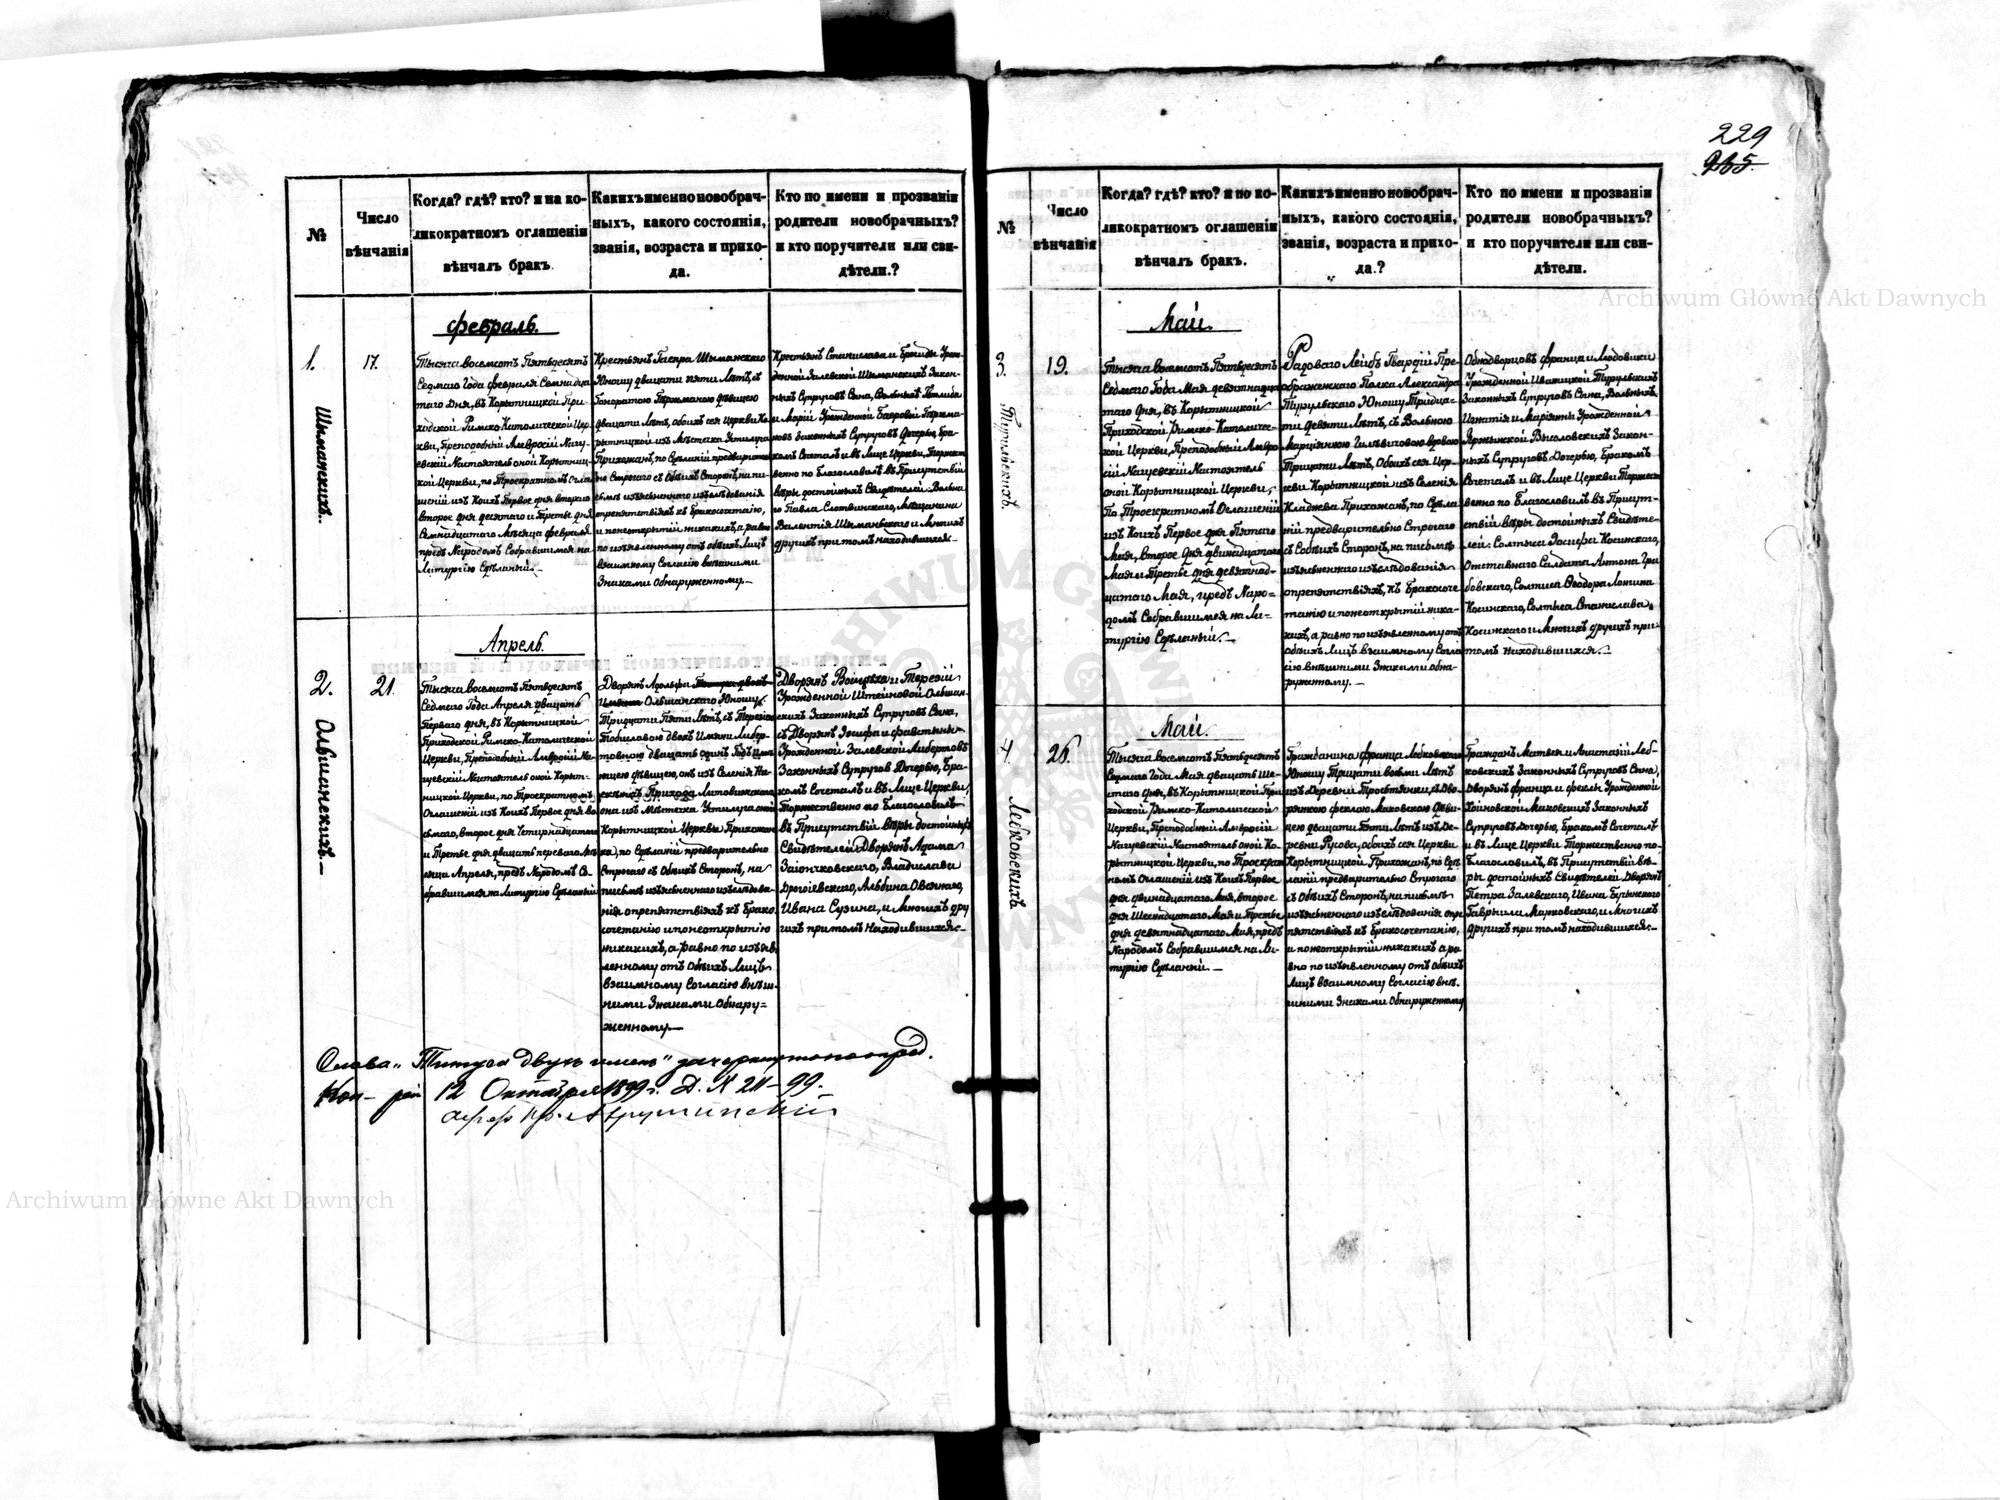 229
255.
№
Число
вѣнчанія
Когда? гдѣ? кто? и на ко-
ликократномъ оглашеніи
вѣнчалъ бракъ.
Какихъ именно новобрач-
ныхъ, какого состоянія,
званія, возраста и прихо-
да.
Кто по имени и прозванію
родители новобрачныхъ?
и кто поручители или сви-
дѣтели.?
Февраль.
1.
17.
Шыманскихъ.
Тысяча Восемсотъ Пятьдесятъ
Седмаго Года Февраля Семнадца
таго Дня, въ Корытницкой При-
ходской Римско Католической Цер
кви, Преподобный Амвросій Нагу-
евскій Настоятель оной Корытниц-
кой Церкви, по Троекратномъ Огла
шеній изъ Коихъ Первое дня втораго
второе дня десятаго и Третье дня
Семнадцатаго Мѣсяца Февраля
предъ Народомъ Собравшимся на
Литургію Сдѣланый.
Крестьянъ Гаспра Шыманскаго
Юношу двацати пяти Лѣтъ, съ
Гоноратою Германою дѣвицею
двацати Лѣтъ, обоихъ сея Церкви Ко
рытницкой изъ Мѣстечка Устилуга
Прихожанъ, по Сдѣланій предварител
но Строгаго съ Обѣихъ Сторонъ, на пи-
сьмѣ изъясненнаго изслѣдованія
опрепятствіяхъ къ Бракосочетанію,
и понеоткрытій никакихъ, а равно
по изъявленному отъ обѣихъ Лицъ
взаимному Согласію внѣшними
Знаками Обнаруженному.
Крестьянъ Станислава и Бригиды Урож-
денной Залевской Шыманскихъ Закон-
ныхъ Супруговъ Сына, Вольныхъ
и Маріи Урожденной
новъ Законныхъ Супруговъ Дочерью, Бра-
комъ Сочеталъ и въ Лице Церкви, Торжест
венно по Благословилъ въ Присутствій
вѣры достойныхъ Свидѣтелей: Вольна
го Павла Слотвинскаго, Мѣщанина
Валентія Шыманьскаго и Многихъ
другихъ при томъ находившихся.
Апрель.
2.
21
Ольшанскихъ.
Тысяча Восемсотъ Пятьдесятъ
Седмаго Года Апреля двацать
Перваго дня, въ Корытницкой
Приходской Римско-Католической
Церкви, Преподобный Амвросій На-
гуевскій Настоятель оной Корыт-
ницкой Церкви, по Троекратномъ
Оглашеній изъ Коихъ Первое дня во
сьмаго, второе дня Четырнадцатаго
и Третье дня двацать перваго Мѣ
сяца Апреля, предъ Народомъ Со-
бравшимся на Литургію Сдѣланый
Дворянъ Адольфа Титуса двохъ
Имянъ Ольшанскаго Юношу
Тридцати Пяти Лѣтъ, съ Терезіею
Богиславою двохъ Имянъ Либер-
товною двацать одинъ Годъ Имѣ
ющею дѣвицею, онъ изъ Селенія
Прихода Литовинскаго
она изъ Мѣстечка Устилуга оной
Корытницкой Церквы Прихожан
ка, по Сдѣланій предварительно
Строгаго съ Обѣихъ Сторонъ, на
письмѣ изъясненнаго изслѣдова-
нія опрепятствіяхъ къ Брако
сочетанію и понеоткрытію
никакихъ, а равно по изъяв
ленному отъ Обѣихъ Лицъ
взаимному Согласію внѣш-
ними Знаками Обнару-
женному.
Дворянъ Войцѣха и Терезіи
Урожденной Штейновой Ольшан-
скихъ Законныхъ Супруговъ Сына,
съ Дворянъ Іосифа и Фавстыны
Урожденной Залевской Либертовъ
Законныхъ Супругов Дочерью, Бра-
комъ Сочеталъ и въ Лице Церкви,
Торжественно по Благословилъ
въ Присутствій вѣры достойныхъ
Свидѣтелей Дворянъ Адама
Заіончковскаго, Владислава
Дрогіевскаго, Альбина Овсянаго,
Ивана Сузина, и Многихъ дру
гихъ при томъ Находившихся.
Слова „Титуса двухъ имянъ“ зачеркнуто по опред.
Кон-рія 12 Октября 1899 г. Д. № 211-99.
№
Число
вѣнчанія
Когда? гдѣ? кто? и по ко-
ликократномъ оглашеніи
вѣнчалъ бракъ.
Какихъ именно новобрач-
ныхъ, какого состоянія,
званія, возраста и прихо-
да.?
Кто по имени и прозванію
родители новобрачныхъ?
и кто поручители или сви-
дѣтели.
Май.
3.
19.
Турульскихъ.
Тысяча Восемсотъ Пятьдесятъ
Седмаго Года Мая девятнадца
таго Дня, въ Корытницкой
Приходской Римско-Католичес-
кой Церкви, Преподобный Амвро
сій Нагуевскій Настоятель
оной Корытницкой Церкви,
По Троекратномъ Оглашеній
изъ Коихъ Первое дня Пятаго
Мая, Второе Дня двинадцатаго
Мая и Третье дня девятнад-
цатаго Мая, предъ Наро-
домъ Собравшимся на Ли-
тургію Сдѣланый.
Рядоваго Лейбъ Гвардіи Пре-
ображенскаго Полка Александра
Турульскаго Юношу Тридца-
ти девяти Лѣтъ, съ Вольною
Марціянною Гильвичовою вдовою
Трицати Лѣтъ, Обоихъ сея Цер-
кви Корытницкой изъ Селенія
Кладнева Прихожанъ, по Сдѣла
ній предварительно Строгаго
съ Собѣихъ Сторонъ, на письмѣ
изъясненнаго изслѣдованія
опрепятствіяхъ, къ Бракосоче
танію и понеоткрытій ника-
кихъ, а равно по изъявленному отъ
обѣихъ Лицъ взаимному Согла
сію внѣшними Знаками обна-
руженному.
Обнодворцовъ Франца и Людовики
Урожденной Ивашцкой Турульскихъ
Законныхъ Супруговъ Сына, Вольныхъ
Игнатія и Маріяны Урожденной
Высловскихъ Закон-
ныхъ Супруговъ Дочерью, Бракомъ
Сочеталъ и въ Лице Церкви Торжест
венно по Благословилъ въ Присут-
ствій вѣры достойныхъ Свидѣте-
лей: Солтыса Іосифа Косинскаго,
Отставнаго Салдата Антона Гра
бовскаго, Солтыса Ѳеодора Лонина
Косинскаго, Солтыса Станислава
Косинскаго и Многихъ другихъ при-
томъ Находившихся.
Май.
4.
26.
Лебковскихъ.
Тысяча Восемсотъ Пятьдесятъ
Седмаго Года Мая двацать Ше-
стаго дня, въ Корытницкой При
ходской Римско-Католической
Церкви, Преподобный Амвросій
Нагуевскій Настоятель оной Ко-
рытницкой Церкви, по Троекрат
номъ Оглашеній изъ Коихъ Первое
дня двинадцатаго Мая, второе
дня Шеснадцатаго Мая и Третье
дня девятнадцатаго Мая, предъ
Народомъ Собравшимся на Ли-
тургію Сдѣланый.
Гражданина Франца Лебковскаго
Юношу Трицати восьми Лѣтъ
изъ Деревни Тростянки, съ Дво-
рянкою Феклою Маковскою Дѣви-
цею двацати Пяти Лѣтъ изъ Де-
ревни Русова, обоихъ сея Церкви
Корытницкой Прихожанъ, по Сдѣ
ланій предварительно Строгаго
съ Обѣихъ Сторонъ, на письмѣ
изъясненнаго изслѣдованія опре
пятствіяхъ къ Бракосочетанію,
и понеоткрытій никакихъ а ра
вно по изъявленному отъ Обѣихъ
Лицъ взаимному Согласію внѣ-
шними Знаками Обнаруженному
Гражданъ Матвея и Анастазіи Леб-
ковскихъ Законныхъ Супруговъ Сына,
Дворянъ Франца и Феклы Урожденной
Хойновской Маковскихъ Законныхъ
Супруговъ Дочерью, Бракомъ Сочеталъ
и въ Лице Церкви Торжественно по-
Благословилъ, въ Присутствій вѣ-
ры достойныхъ Свидѣтелей Дворянъ
Петра Залевскаго, Ивана Бутынского
Гаврыила Марковскаго, и Многихъ
другихъ при томъ находившихся.
Archiwum Główne Akt Dawnych
Archiwum Główne Akt Dawnych